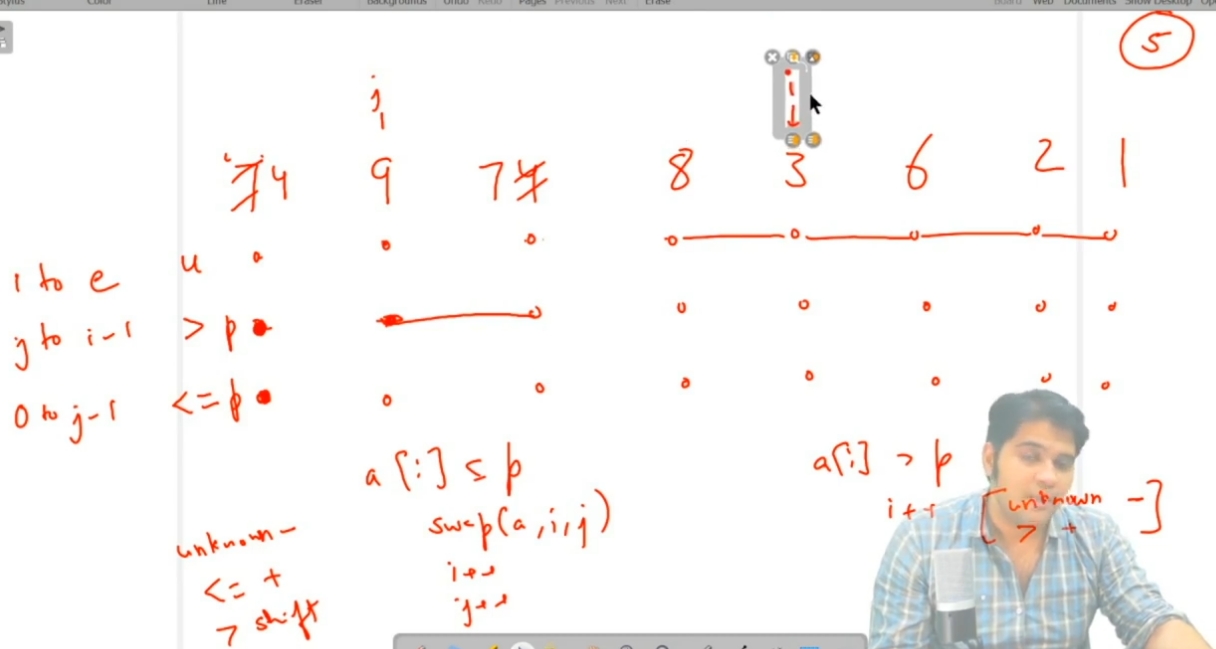 Color Line Eraser Backgrounds Undo Redo Pages Previous Next Erase Board Web Documents Show Desktop
5
j
i
4 9 7 8 3 6 2 1
i to e u
j to i-1 > p
0 to j-1 <= p
a[i] ≤ p
a[i] > p
swap(a,i,j)
i++ [unknown -]
> +
unknown -
i++
<= +
j++
> shift